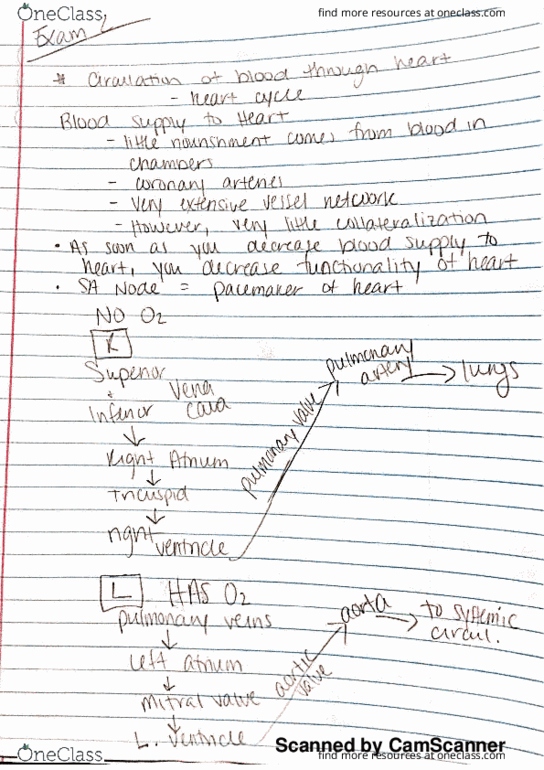 OneClass
find more resources at oneclass.com
Exam 2
* Circulation of blood through heart
- heart cycle
Blood supply to Heart
- little nourishment comes from blood in
chambers
- coronary arteries
- very extensive vessel network
- However, very little collateralization
• As soon as you decrease blood supply to
heart, you decrease functionality of heart
• SA Node = pacemaker of heart
NO O2
R
Superior
+
Inferior
Vena
Cava
Right Atrium
Tricuspid
right ventricle
pulmonary valve
pulmonary
artery
lungs
L HAS O2
pulmonary veins
left atrium
mitral valve
L. ventricle
aortic
valve
aorta
to systemic
circul.
Scanned by CamScanner
OneClass
find more resources at oneclass.com